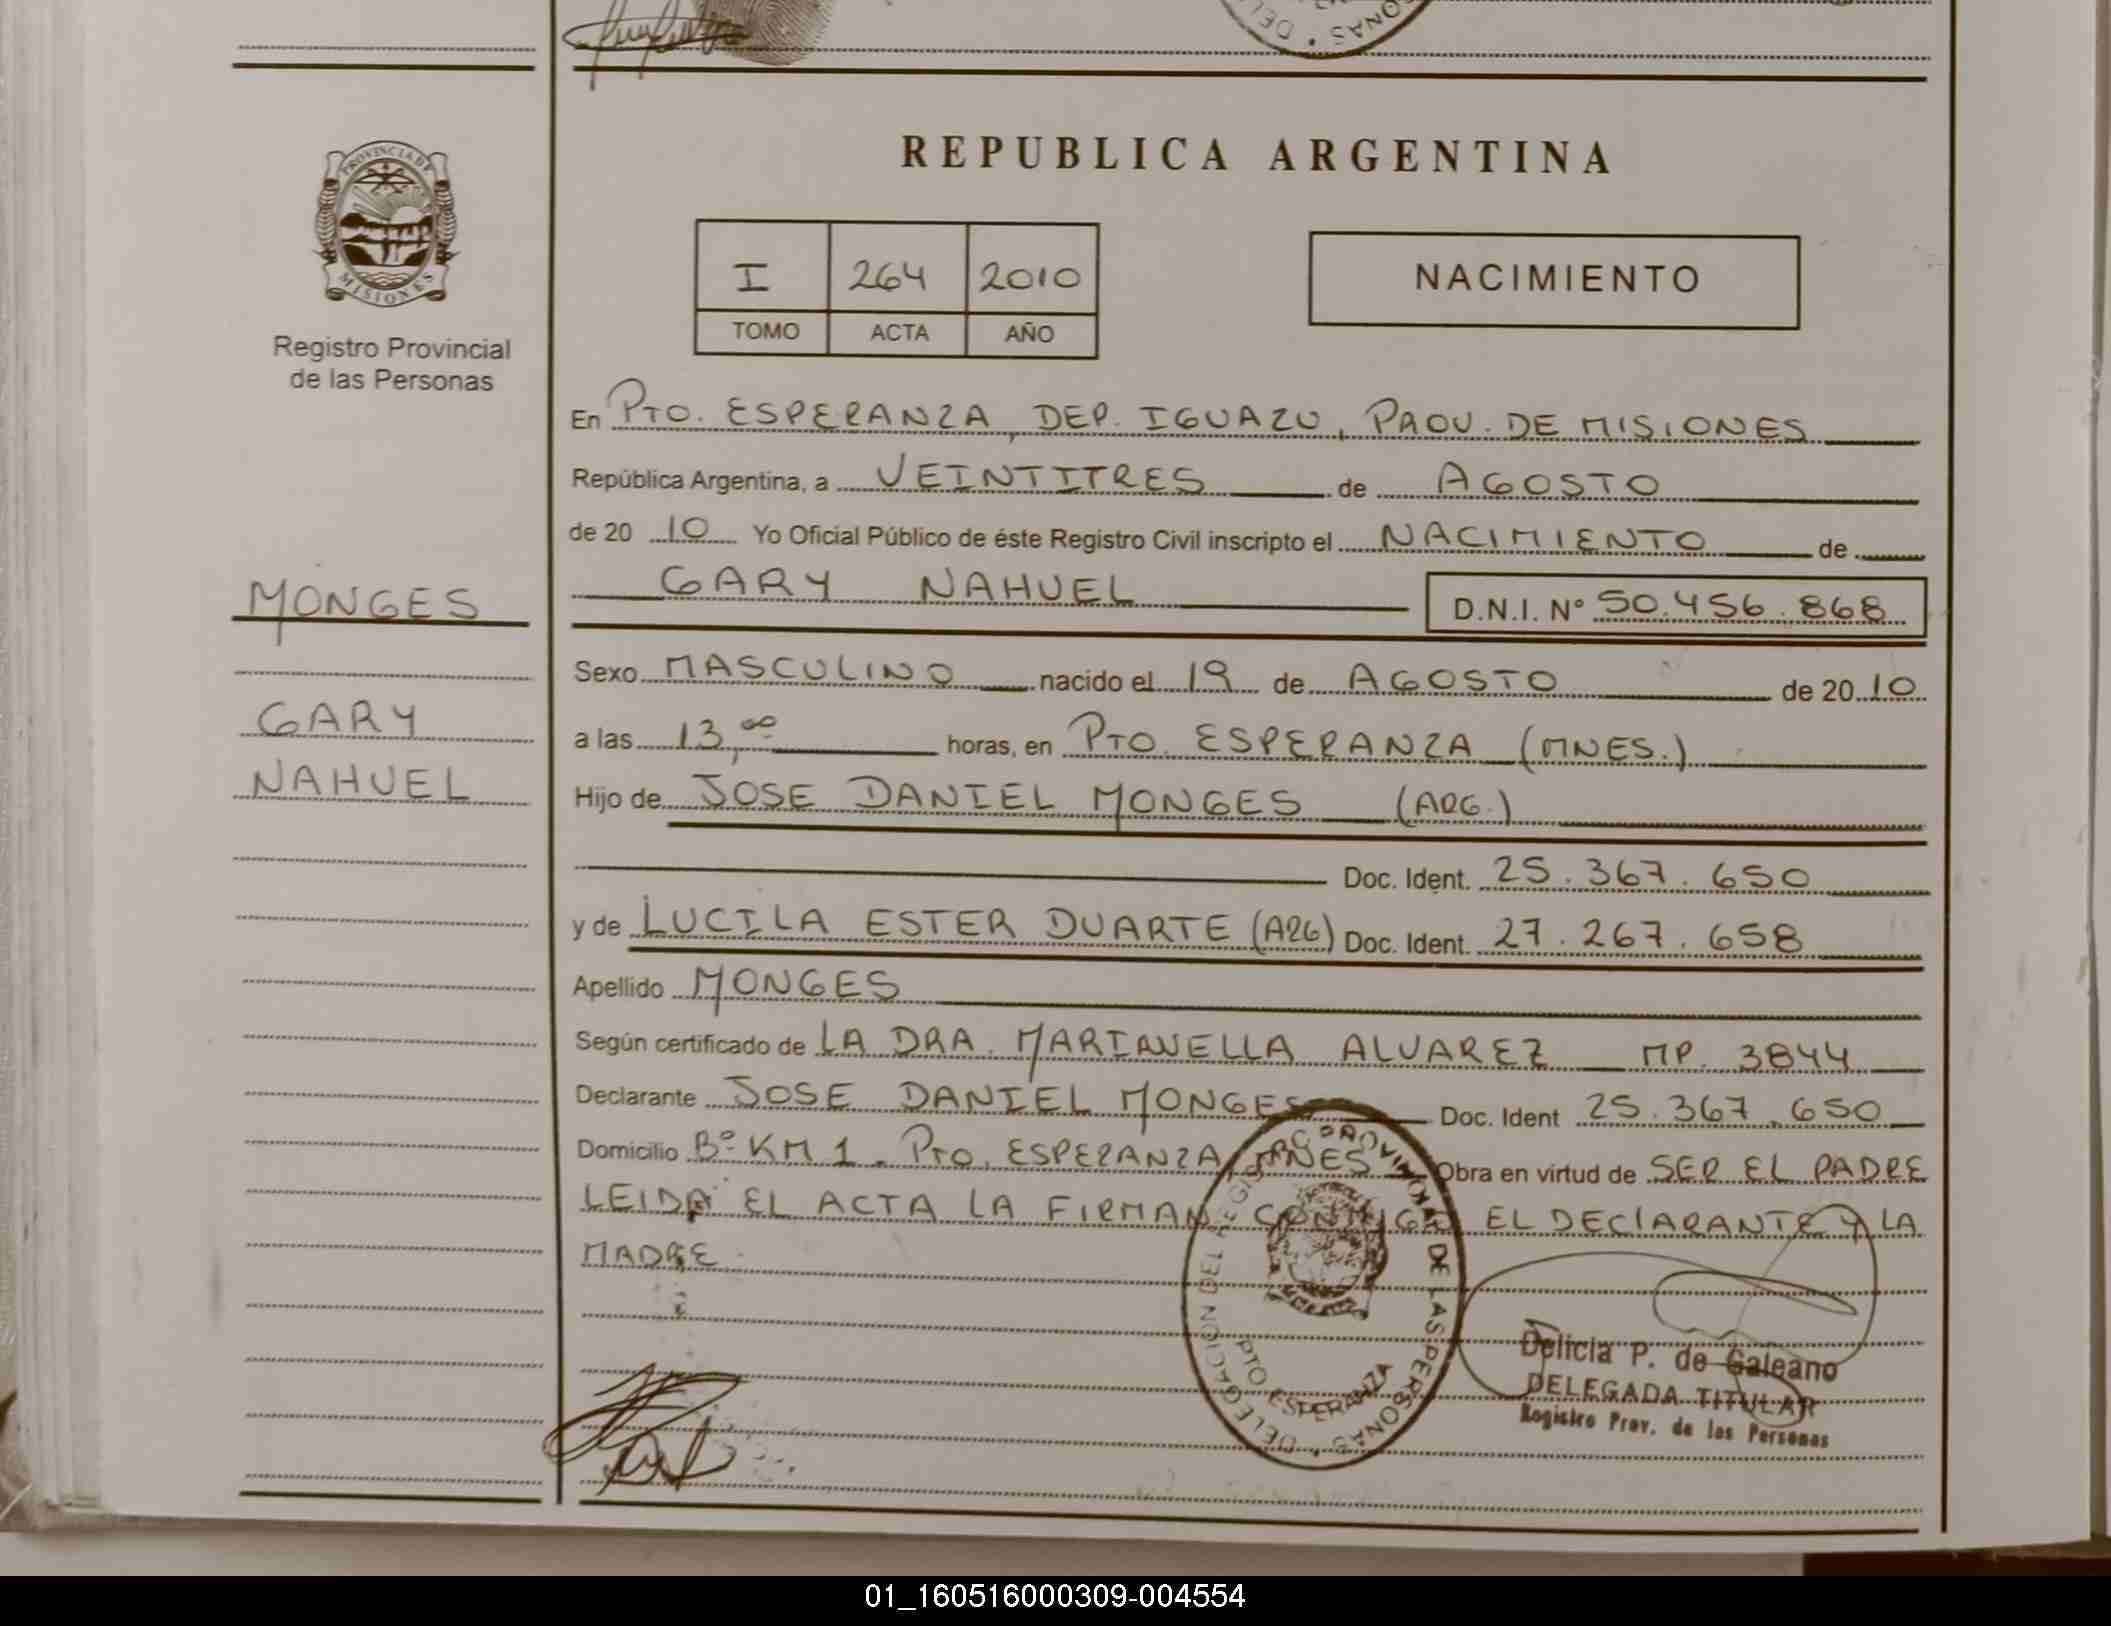 REPUBLICA ARGENTINA
PROVINCIA DE
MISIONES
Registro Provincial
de las Personas
I 264 2010
TOMO ACTA AÑO
NACIMIENTO
En PTO. ESPERANZA, DEP. IGUAZU, PROV. DE MISIONES
República Argentina, a VEINTITRES de AGOSTO
de 20 10 Yo Oficial Público de éste Registro Civil inscripto el NACIMIENTO de
GARY NAHUEL D.N.I. Nº 50.456.868
MONGES
GARY
NAHUEL
Sexo MASCULINO nacido el 19 de AGOSTO de 20 10
a las 13,00 horas, en PTO. ESPERANZA (MNES.)
Hijo de JOSE DANIEL MONGES (ARG.)
Doc. Ident. 25.367.650
y de LUCILA ESTER DUARTE (ARG) Doc. Ident. 27.267.658
Apellido MONGES
Según certificado de LA DRA. MARIANELLA ALVAREZ MP. 3844
Declarante JOSE DANIEL MONGES Doc. Ident 25.367.650
Domicilio Bº KM 1. PTO. ESPERANZA, MNES Obra en virtud de SER EL PADRE
LEIDA EL ACTA LA FIRMAN CONMIGO EL DECLARANTE Y LA
MADRE.
DELEGACION DEL REGISTRO PROVINCIAL DE LAS PERSONAS
PTO ESPERANZA
Delicia P. de Galeano
DELEGADA TITULAR
Registro Prov. de las Personas
01_160516000309-004554